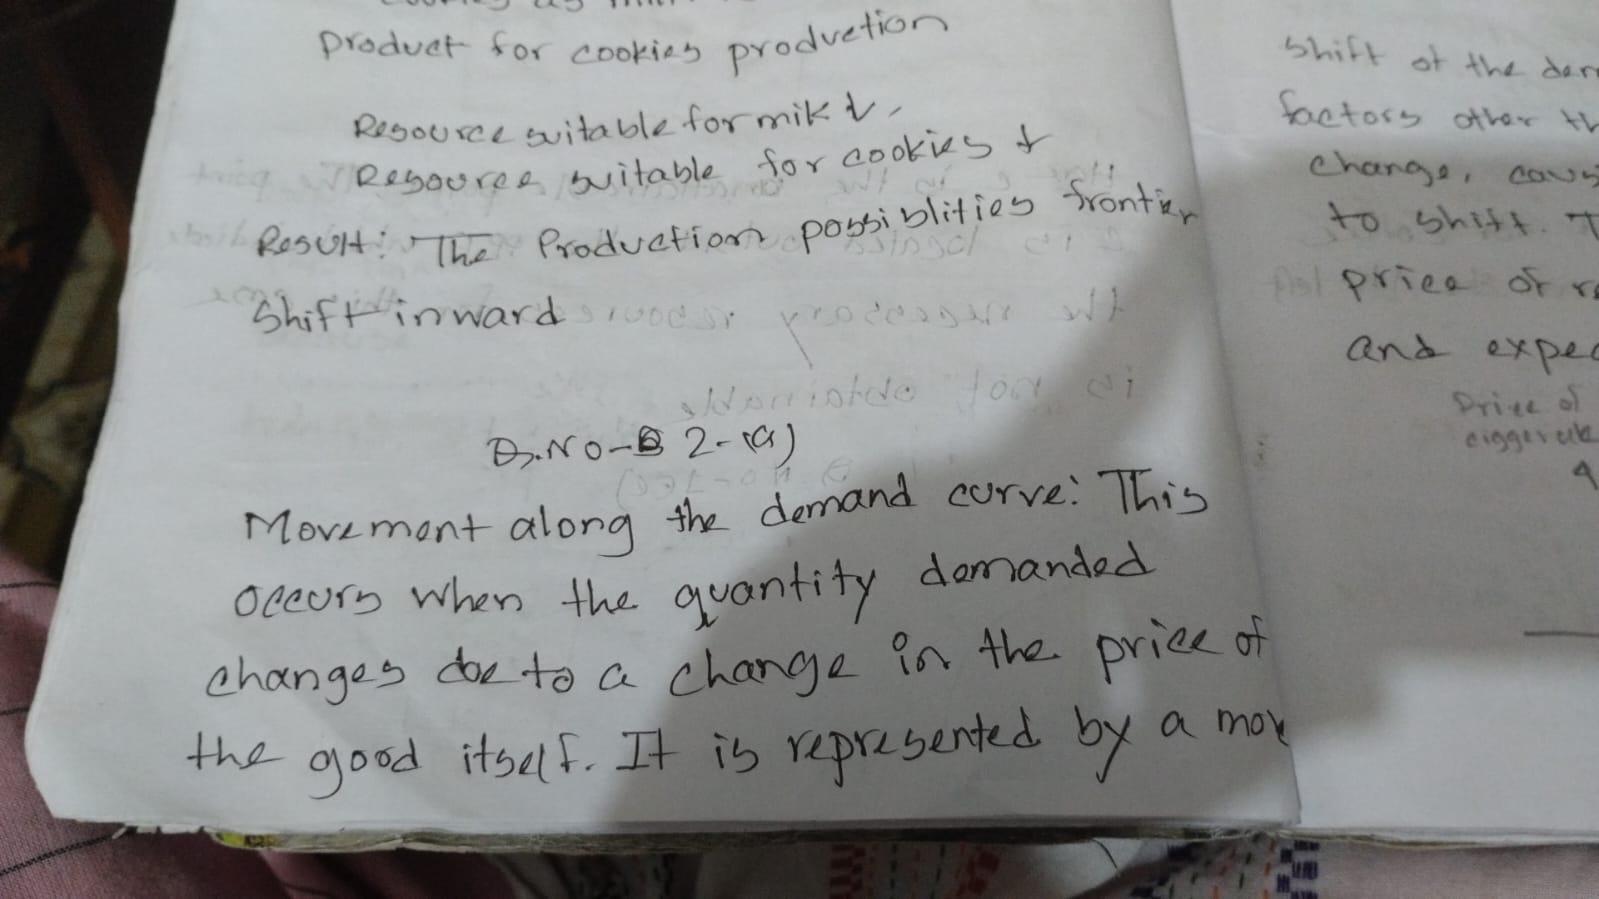 product for cookies production
Resource suitable for mik ↓,
Resource suitable for cookies ↓
Result: The Production possiblities frontier
Shift inward
Q.NO-2-(a)
Movement along the demand curve: This
occurs when the quantity demanded
changes due to a change in the price of
the good itself. It is represented by a mov
shift of the dem
factors other th
change, caus
to shift. T
price of re
and expec
Price of
4